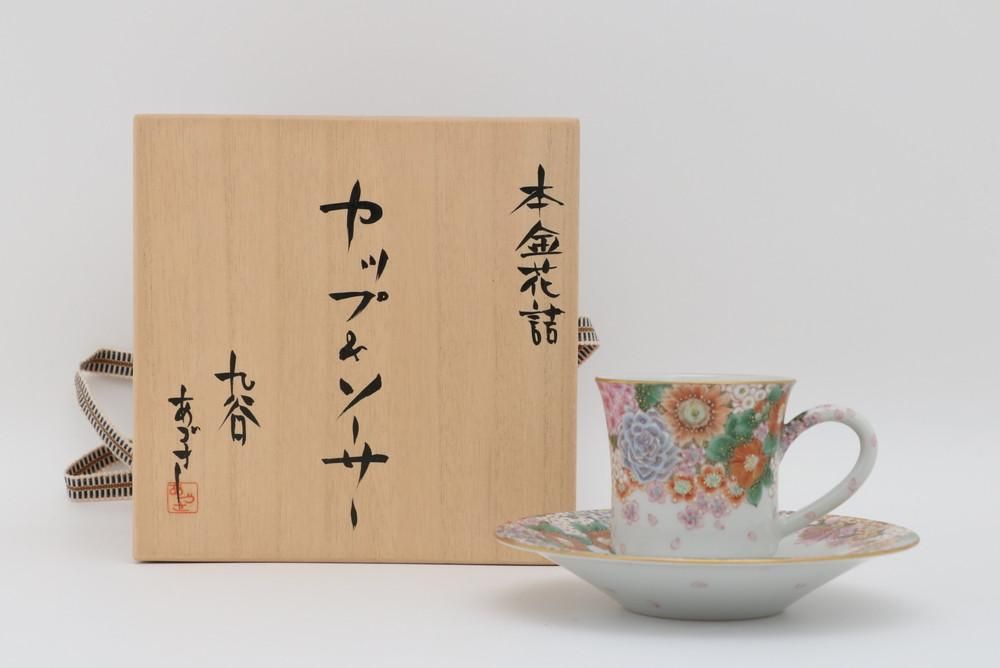 本金花詰
カップ&ソーサー
九谷
あづさ